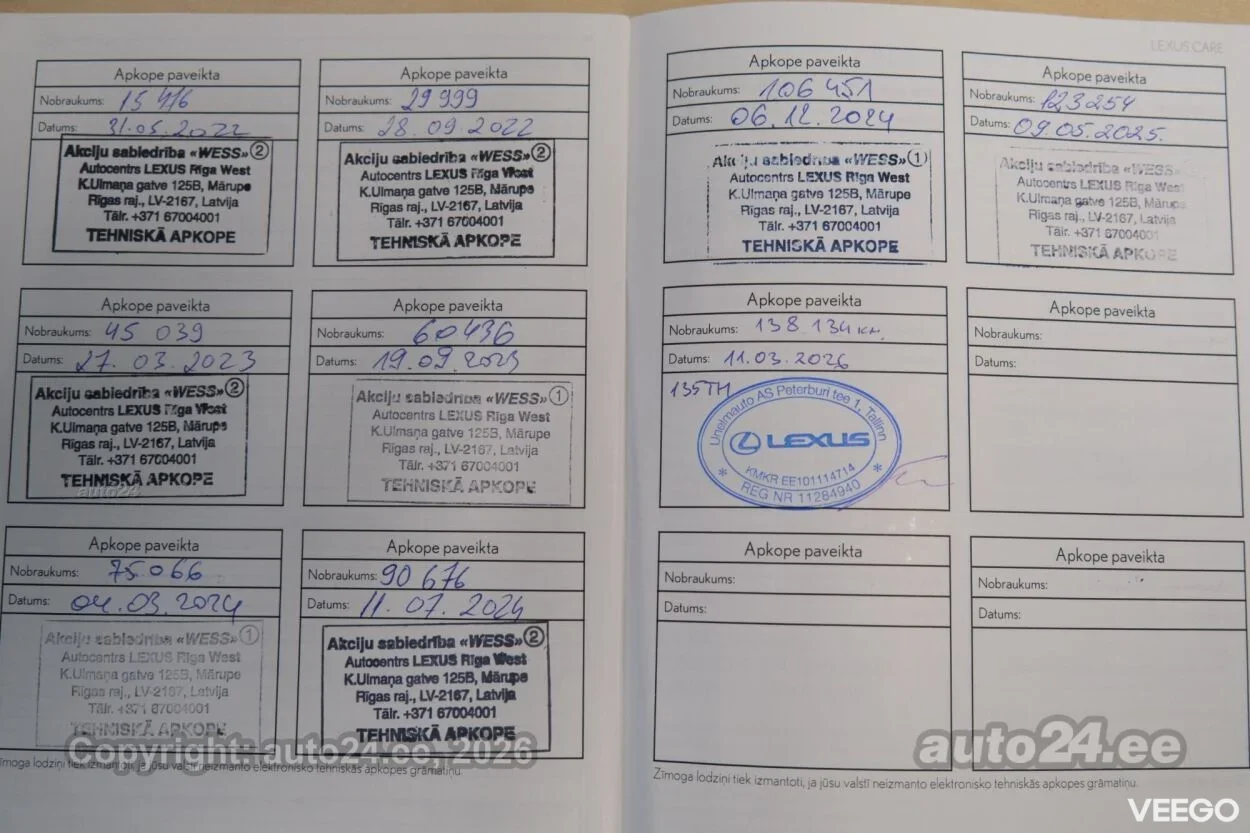 Apkope paveikta
Nobraukums: 15 416
Datums: 31.05.2022
Akciju sabiedrība «WESS» 2
Autocentrs LEXUS Rīga West
K.Ulmaņa gatve 125B, Mārupe
Rīgas raj., LV-2167, Latvija
Tālr. +371 67004001
TEHNISKĀ APKOPE
Apkope paveikta
Nobraukums: 29 999
Datums: 28.09.2022
Akciju sabiedrība «WESS» 2
Autocentrs LEXUS Rīga West
K.Ulmaņa gatve 125B, Mārupe
Rīgas raj., LV-2167, Latvija
Tālr. +371 67004001
TEHNISKĀ APKOPE
Apkope paveikta
Nobraukums: 45 039
Datums: 27.03.2023
Akciju sabiedrība «WESS» 2
Autocentrs LEXUS Rīga West
K.Ulmaņa gatve 125B, Mārupe
Rīgas raj., LV-2167, Latvija
Tālr. +371 67004001
TEHNISKĀ APKOPE
auto24
Apkope paveikta
Nobraukums: 60436
Datums: 19.09.2023
Akciju sabiedrība «WESS» 1
Autocentrs LEXUS Rīga West
K.Ulmaņa gatve 125B, Mārupe
Rīgas raj., LV-2167, Latvija
Tālr. +371 67004001
TEHNISKĀ APKOPE
Apkope paveikta
Nobraukums: 75066
Datums: 04.03.2024
Akciju sabiedrība «WESS» 1
Autocentrs LEXUS Rīga West
K.Ulmaņa gatve 125B, Mārupe
Rīgas raj., LV-2167, Latvija
Tālr. +371 67004001
TEHNISKĀ APKOPE
Apkope paveikta
Nobraukums: 90 676
Datums: 11.07.2024
Akciju sabiedrība «WESS» 2
Autocentrs LEXUS Rīga West
K.Ulmaņa gatve 125B, Mārupe
Rīgas raj., LV-2167, Latvija
Tālr. +371 67004001
TEHNISKĀ APKOPE
Copyright: auto24.ee, 2026
Zīmoga lodziņi tiek izmantoti, ja jūsu valstī neizmanto elektronisko tehniskās apkopes grāmatiņu.
LEXUS CARE
Apkope paveikta
Nobraukums: 106 451
Datums: 06.12.2024
Akciju sabiedrība «WESS» 1
Autocentrs LEXUS Rīga West
K.Ulmaņa gatve 125B, Mārupe
Rīgas raj., LV-2167, Latvija
Tālr. +371 67004001
TEHNISKĀ APKOPE
Apkope paveikta
Nobraukums: 123254
Datums: 09.05.2025.
Akciju sabiedrība «WESS»
Autocentrs LEXUS Rīga West
K.Ulmaņa gatve 125B, Mārupe
Rīgas raj., LV-2167, Latvija
Tālr. +371 67004001
TEHNISKĀ APKOPE
Apkope paveikta
Nobraukums: 138 134 км.
Datums: 11.03.2026
135TH
Unelmauto AS Peterburi tee 1, Tallinn
LEXUS
KMKR EE101114714
* REG NR 11284940 *
Apkope paveikta
Nobraukums:
Datums:
Apkope paveikta
Nobraukums:
Datums:
Apkope paveikta
Nobraukums:
Datums:
auto24.ee
Zīmoga lodziņi tiek izmantoti, ja jūsu valstī neizmanto elektronisko tehniskās apkopes grāmatiņu.
VEEGO